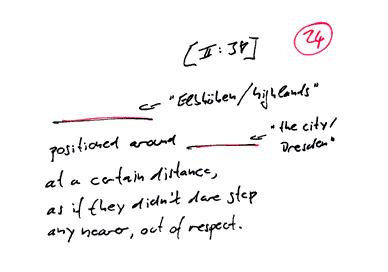 24
[II:38]
"Elbhöhen/highlands"
positioned around
"the city/
Dresden"
at a certain distance,
as if they didn't dare step
any nearer, out of respect.